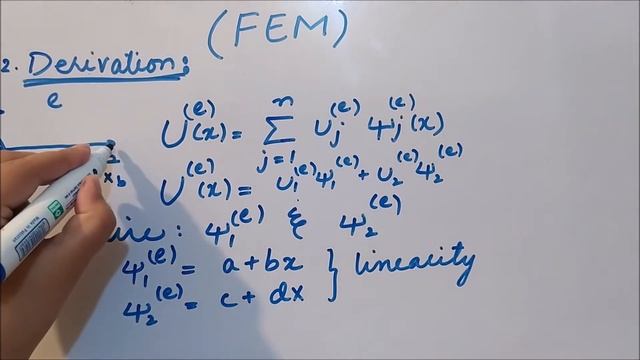 (FEM)
2. Derivation:
e
U^(e)(x) = ∑_{j=1}^{n} U_j^(e) Ψ_j^(e)(x)
2
x_b
U^(e)(x) = U_1^(e) Ψ_1^(e) + U_2^(e) Ψ_2^(e)
: Ψ_1^(e) & Ψ_2^(e)
Ψ_1^(e) = a + bx } linearity
Ψ_2^(e) = c + dx